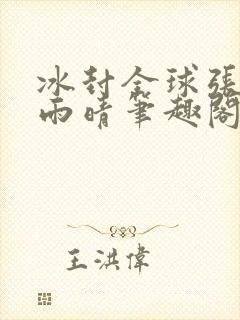 冰封全球張
雨晴筆趣閣
王洪偉